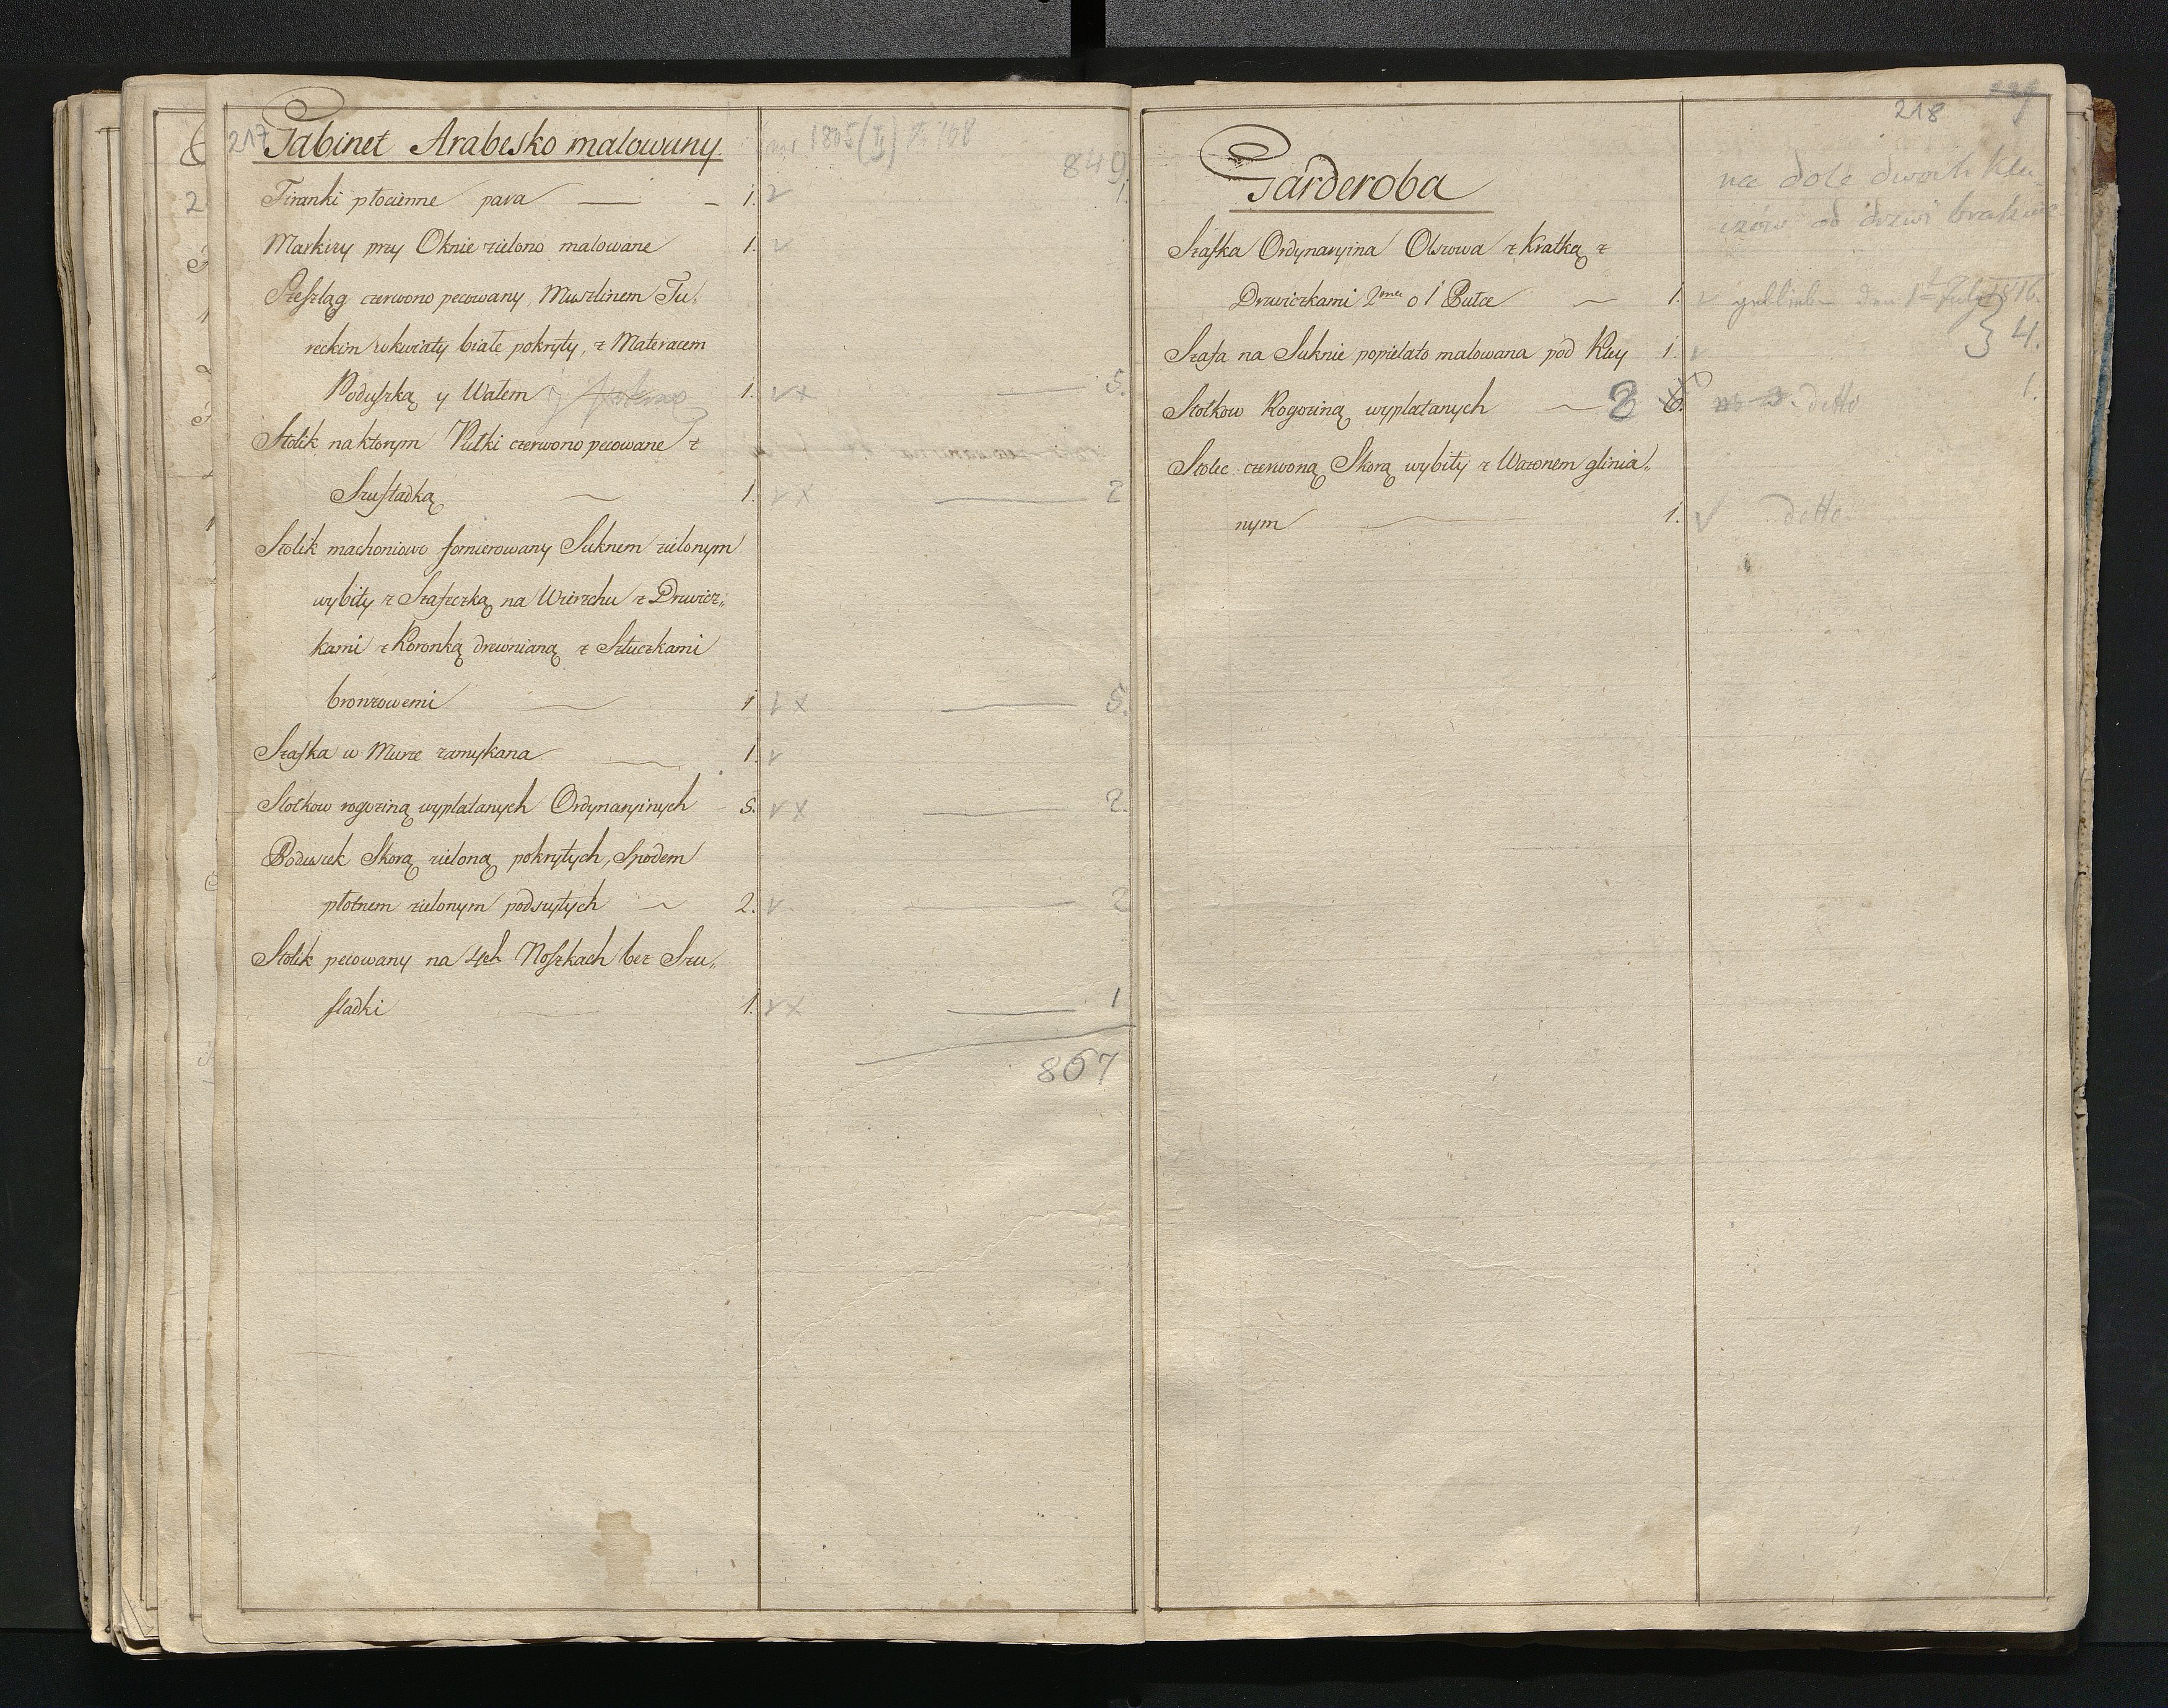 217 Gabinet Arabesko malowany.
849
Firanki płocienne para — - 1. 1.
Markizy przy Oknie zielono malowane 1.
Szeszląg czerwono pecowany, Muszlinem Tu„
reckim w kwiaty białe pokryty, z Materacem
Poduszką y Wałem 1. — 5.
Stolik na ktorym Pułki czerwono pecowane z
Szufladką 1. — 2
Stolik machoniowo fornierowany Suknem zielonym
wybity z Szafeczką na Wierzchu z Drzwicz„
kami z Koronką drewnianą z Sztuczkami
bronzowemi 1 — 5.
Szafka w Murze zamykana 1.
Stołkow rogoziną wyplatanych Ordynaryinych - 5. — 2.
Poduszek Skorą zieloną pokrytych, Spodem
płotnem zielonym podszytych 2. — 2
Stolik pecowany na 4ch Noszkach bez Szu„
fladki 1. — 1
867
218
Garderoba
na dole dwoch klu„
czów od drzwi brakuie
Szafka Ordynaryina Olszowa z Kratką z
Drzwiczkami 2ma o 1 Pułce 1. geblieben den 1ten July 1816.
Szafa na Suknie popielato malowana pod Kluy 1. } 4.
Stołkow Rogoziną wyplatanych — 2 6. detto 1.
Stolec czerwoną Skorą wybity z Wazonem glinia„
nym 1. detto.